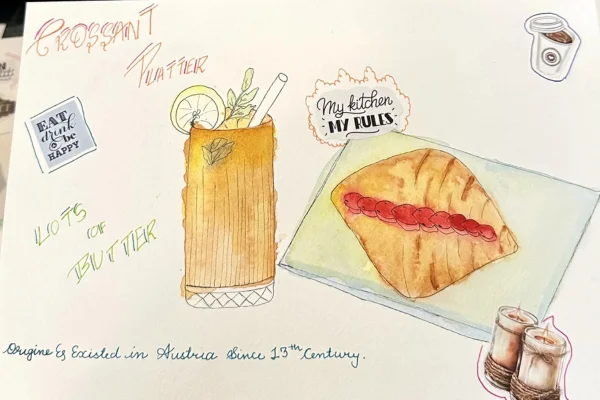 CROSSANT
PLATTER
My kitchen
MY RULES
EAT
drink
& be
HAPPY
LOTS
OF
BUTTER
Origine Es Existed in Austria Since 13th Century.